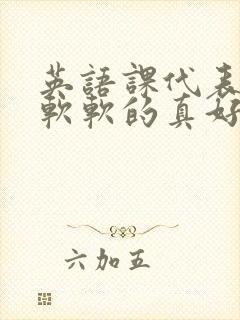 英語課代表
軟軟的真好
六加五